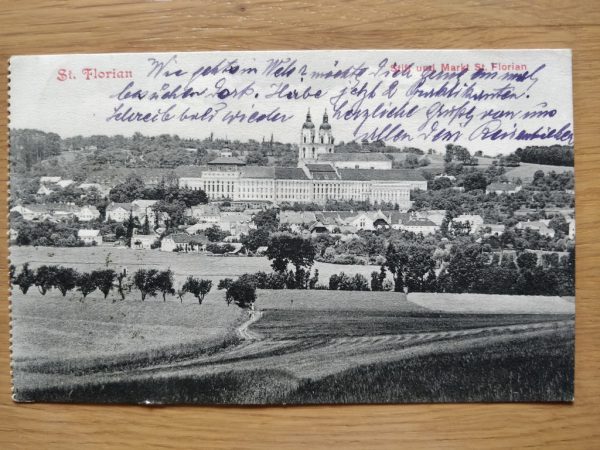 St. Florian
Stift und Markt St. Florian
Wie gehts in Wels? möchte Dich gerne einmal
besuchen dort. Habe jetzt 2 Praktikanten.
Schreib bald wieder Herzliche Grüße von uns
allen Dein